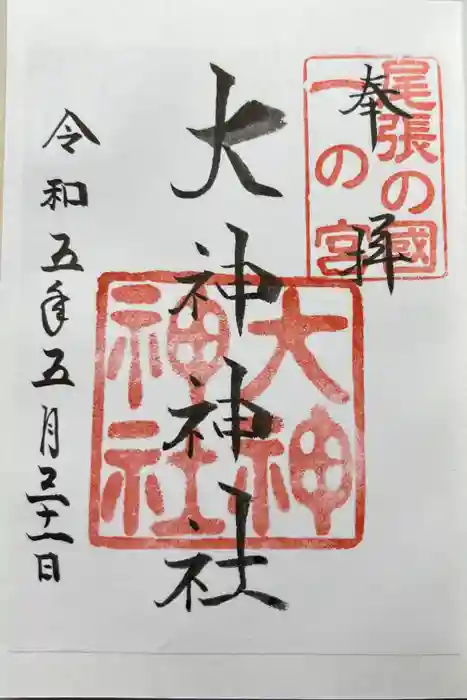 尾張の國
一の宮
奉拝
大神神社
大神
神社
令和五年五月二十一日